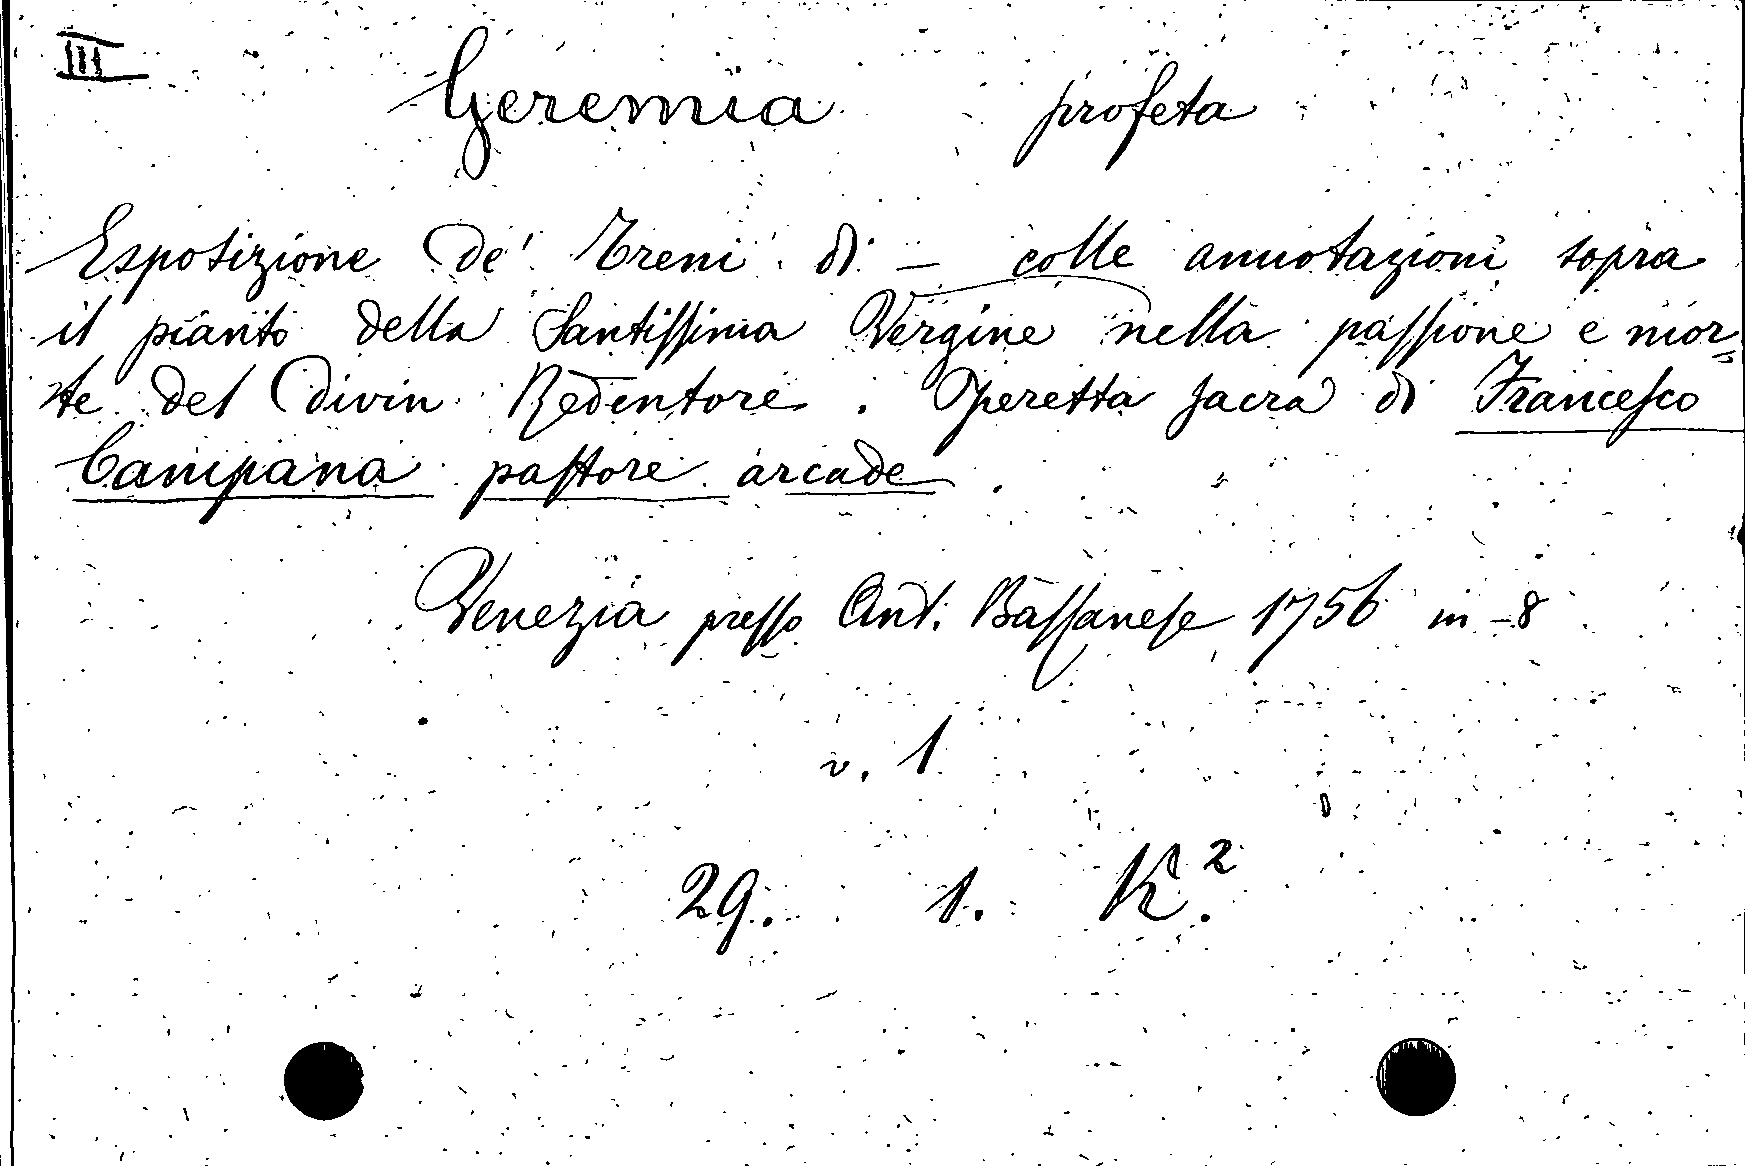 III
Geremia profeta
Esposizione de' Treni di — colle annotazioni sopra
il pianto della Santissima Vergine nella passione e mor=
te del Divin Redentore. Operetta sacra di Francesco
Campana pastore arcade.
Venezia presso Ant. Bassanese 1756 in-8
v. 1
29. 1. K.²